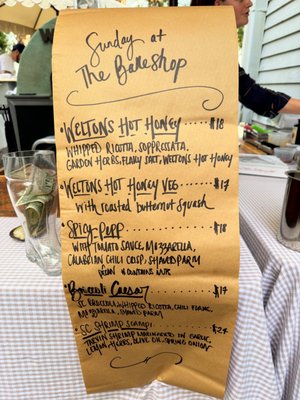 Sunday at
The Bakeshop
• WELTONS HOT HONEY $18
WHIPPED RICOTTA, SOPPRESSATA,
GARDEN HERBS, FLAKY SALT, WELTONS HOT HONEY
• WELTONS HOT HONEY VEG $17
with roasted butternut squash
• SPICY-PEPP $18
WITH TOMATO SAUCE, MOZZARELLA,
CALABRIAN CHILI CRISP, SHAVED PARM
CONTAINS NUTS
• Broccoli Caesar $17
SC BROCCOLI, WHIPPED RICOTTA, CHILI FLAKE,
MOZZARELLA, SHAVED PARM
• SC SHRIMP SCAMPI $24
TARVIN SHRIMP MARINATED IN GARLIC,
LEMON, HERBS, OLIVE OIL, SPRING ONION